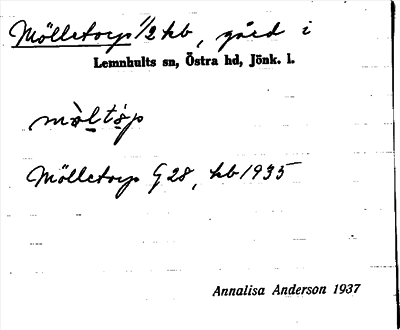 Mölletorp 1/2 kb, gård i
Lemnhults sn, Östra hd, Jönk. l.
mø̀ltǿp
Mölletorp G 28, kb 1935
Annalisa Anderson 1937